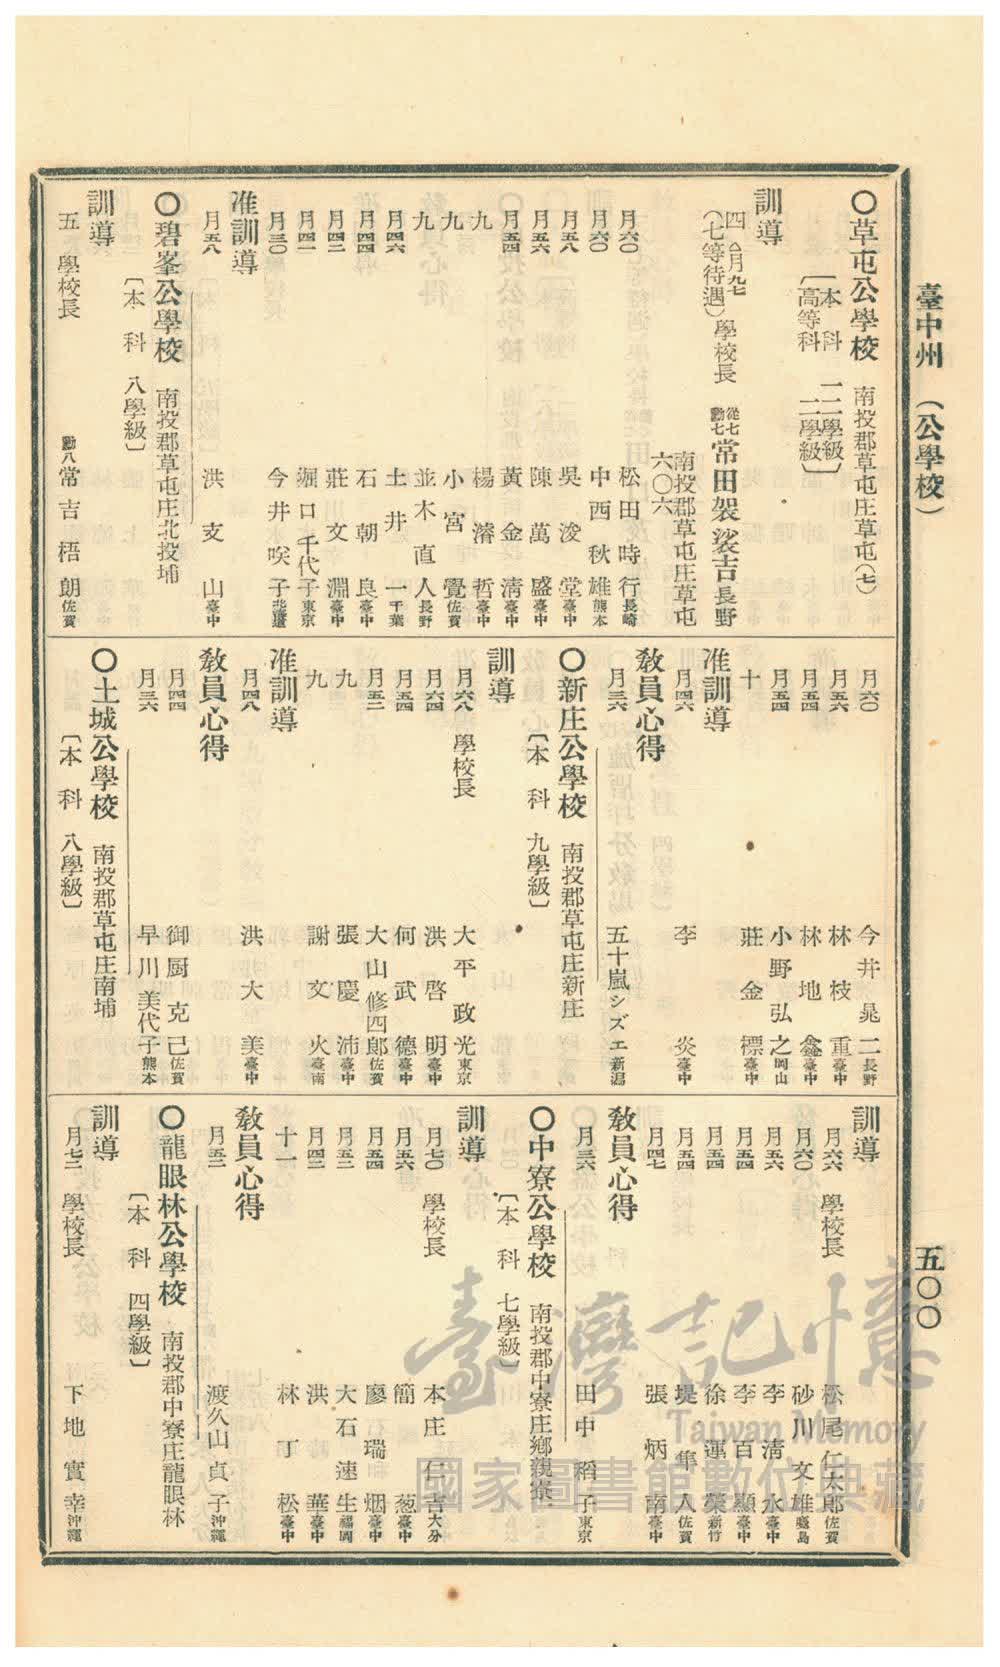 臺中州 (公學校)
五〇〇
〇草屯公學校 南投郡草屯庄草屯(七)
〔本科 一二學級
高等科 二學級〕
訓導
四 (月九七
(七等待遇) 學校長 從七勳七 常田袈裟吉 長野
南投郡草屯庄草屯
六〇六
月六〇 松田時行 長崎
月六〇 中西秋雄 熊本
月五八 吳浚堂 臺中
月五六 陳萬盛 臺中
月五四 黃金清 臺中
九 楊濬哲 臺中
九 小宮覺 佐賀
九 並木直人 長野
月四六 土井一 千葉
月四四 石朝良 臺中
月四二 莊文淵 臺中
月四二 堀口千代子 東京
月三〇 今井咲子
准訓導
月五八 洪支山 臺中
〇碧峯公學校 南投郡草屯庄北投埔
〔本科 八學級〕
訓導
五 學校長 勳八 常吉梧朗 佐賀
月六〇 今井晁二 長野
月五六 林枝重 臺中
月五四 林地鑫 臺中
月五四 小野弘之 岡山
十 莊金標 臺中
准訓導
月四六 李炎 臺中
敎員心得
月三六 五十嵐シズエ 新潟
〇新庄公學校 南投郡草屯庄新庄
〔本科 九學級〕
訓導
月六八 學校長 大平政光 東京
月六四 洪啓明 臺中
月五四 何武德 臺中
月五二 大山修四郞 佐賀
九 張慶沛 臺中
九 謝文火 臺南
准訓導
月四八 洪大美 臺中
敎員心得
月四四 御厨克己 佐賀
月三六 早川美代子 熊本
〇土城公學校 南投郡草屯庄南埔
〔本科 八學級〕
訓導
月六六 學校長 松尾仁太郞 佐賀
月六〇 砂川文雄
月五六 李淸水 臺中
月五四 李百顯 臺中
月五四 徐運榮 新竹
月五四 堤隼人 佐賀
月四七 張炳南 臺中
敎員心得
月三六 田中稻子 東京
〇中寮公學校 南投郡中寮庄鄉親寮
〔本科 七學級〕
訓導
月七〇 學校長 本庄仁吉 大分
月五六 簡葱 臺中
月五四 廖瑞烟 臺中
月五二 大石速生 福岡
月四二 洪華 臺中
十一 林丁松 臺中
敎員心得
月五二 渡久山貞子 沖繩
〇龍眼林公學校 南投郡中寮庄龍眼林
〔本科 四學級〕
訓導
月七二 學校長 下地實幸 沖繩
臺灣記憶
Taiwan Memory
國家圖書館數位典藏